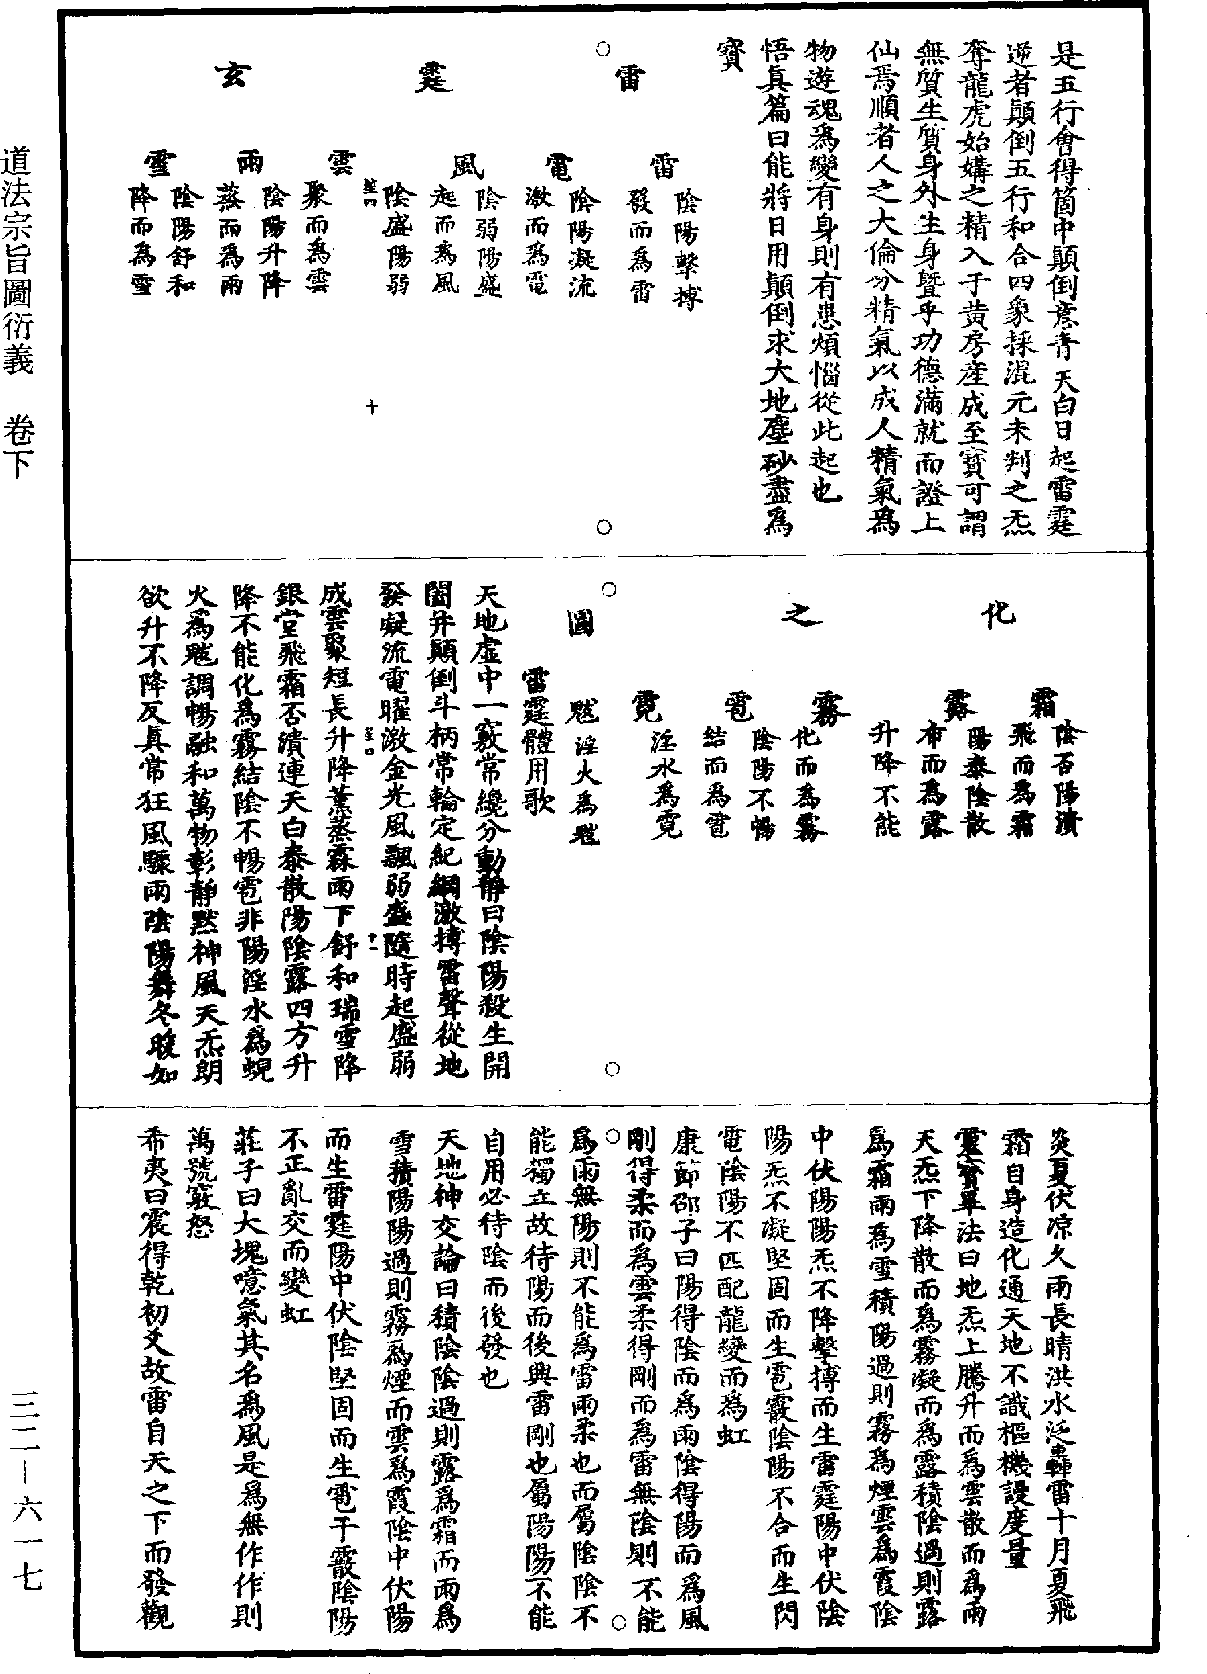 是五行會得箇中顛倒意青天白日起雷霆
逆者顛倒五行和合四象採混元未判之炁
奪龍虎始媾之精入于黃房産成至寶可謂
無質生質身外生身曁乎功德滿就而證上
仙焉順者人之大倫分精氣以成人精氣爲
物遊魂爲變有身則有患煩惱從此起也
悟眞篇曰能將日用顛倒求大地塵砂盡爲
寶
雷　霆　玄
雷
陰陽擊搏
發而爲雷
電
陰陽凝流
激而爲電
風
陰弱陽盛
起而爲風
陰盛陽弱
十
雲
聚而爲雲
雨
陰陽升降
蒸而爲雨
雪
陰陽舒和
降而爲雪
化　之　圖
霜
陰否陽瀆
飛而爲霜
露
陽泰陰散
布而爲露
霧
升降不能
化而爲霧
雹
陰陽不暢
結而爲雹
霓
淫水爲霓
魃
淫火爲魃
雷霆體用歌
天地虛中一竅常纔分動靜曰陰陽殺生開
闔井顛倒斗柄常輪定紀綱激搏雷聲從地
發凝流電曜激金光風飄弱盛隨時起盛弱
十一
成雲聚短長升降薰蒸霖雨下舒和瑞雪降
銀堂飛霜否瀆連天白泰散陽陰露四方升
降不能化爲霧結陰不暢雹非陽淫水爲蜺
火爲魃調暢融和萬物彰靜黙神風天炁朗
欲升不降反眞常狂風驟雨陰陽舞冬暖如
炎夏伏凉久雨長晴洪水泛轟雷十月夏飛
霜自身造化通天地不識樞機謾度量
靈寶畢法曰地炁上騰升而爲雲散而爲雨
天炁下降散而爲霧凝而爲露積陰過則露
爲霜雨爲雪積陽過則霧爲煙雲爲霞陰
中伏陽陽炁不降擊搏而生雷霆陽中伏陰
陽炁不凝堅固而生雹霰陰陽不合而生閃
電陰陽不匹配龍變而爲虹
康節邵子曰陽得陰而爲雨陰得陽而爲風
剛得柔而爲雲柔得剛而爲雷無陰則不能
爲雨無陽則不能爲雷雨柔也而屬陰陰不
能獨立故待陽而後興雷剛也屬陽陽不能
自用必待陰而後發也
天地神交論曰積陰陰過則露爲霜而雨爲
雪積陽陽過則霧爲煙而雲爲霞陰中伏陽
而生雷霆陽中伏陰堅固而生雹于霰陰陽
不正亂交而變虹
莊子曰大塊噫氣其名爲風是爲無作作則
萬號竅怒
希夷曰震得乾初爻故雷自天之下而發觀
道法宗旨圖衍義　卷下
三二—六一七